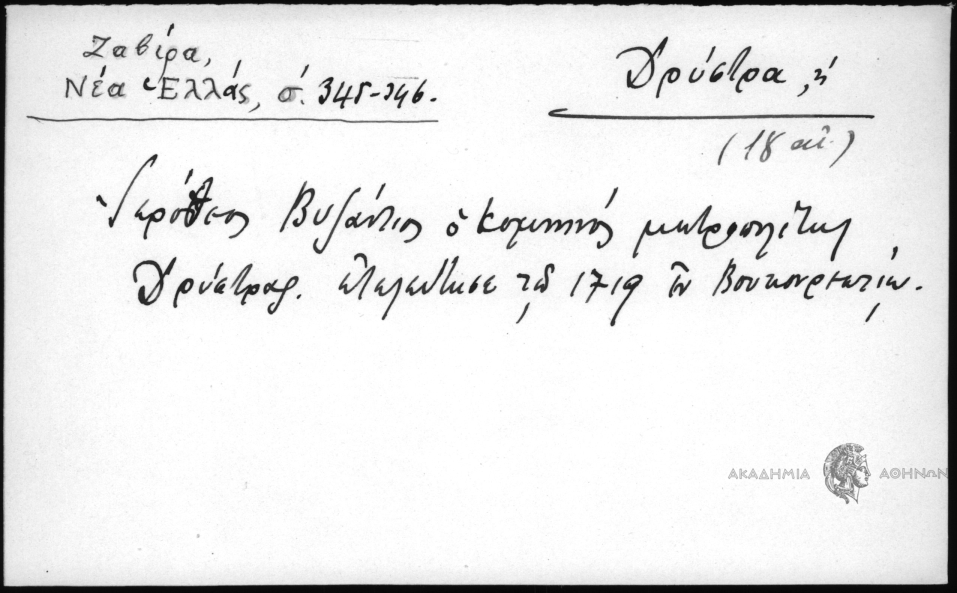 Ζαβίρα,
Νέα Ἑλλάς, σ. 345-346.
Δρύστρα, ἡ
(18 αἰ.)
Ἱερόθεος Βυζάντιος ὁ Κομνηνός μητροπολίτης
Δρύστρας. ἐτελεύτησε τῷ 1719 ἐν Βουκουρεστίῳ.
ΑΚΑΔΗΜΙΑ ΑΘΗΝΩΝ